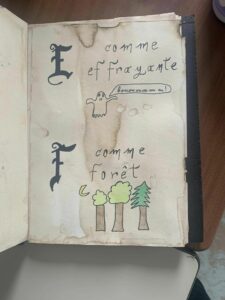 E comme
effrayante
F comme
forêt